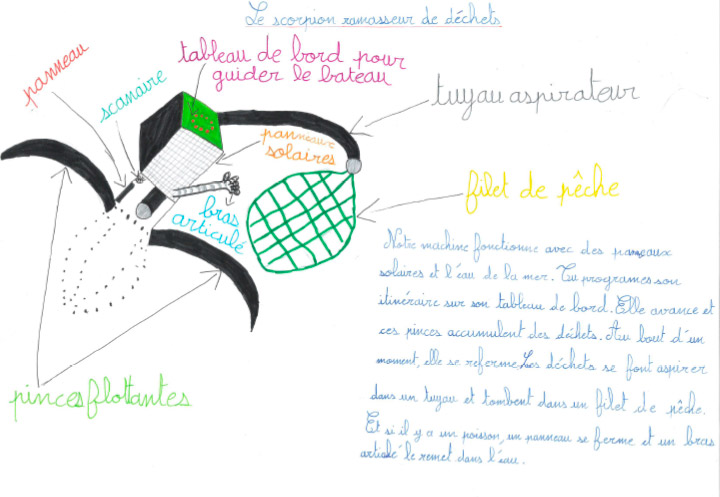 Le scorpion ramasseur de déchets
panneau
scanaire
tableau de bord pour
guider le bateau
tuyau aspirateur
panneaux
solaires
bras
articulé
filet de pêche
pinces flottantes
Notre machine fonctionne avec des panneaux
solaires et l'eau de la mer. Tu programes son
itinéraire sur son tableau de bord. Elle avance et
ces pinces accumulent des déchets. Au bout d'un
moment, elle se referme. Les déchets se font aspirer
dans un tuyau et tombent dans un filet de pêche.
Et si il y a un poisson, un panneau se ferme et un bras
articulé le remet dans l'eau.